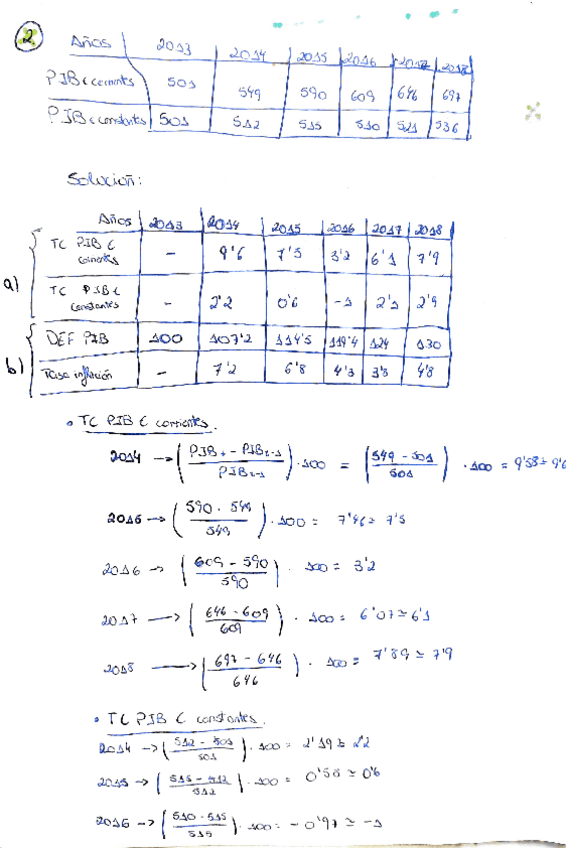 2
Años 2013 2014 2015 2016 2017 2018
PIB € corrientes 501 549 590 609 646 697
PIB € constantes 501 512 515 510 521 536
Solución:
Años 2013 2014 2015 2016 2017 2018
a) TC PIB € corrientes - 9'6 7'5 3'2 6'1 7'9
TC PIB € constantes - 2'2 0'6 -1 2'1 2'9
b) DEF PIB 100 107'2 114'5 119'4 124 130
Tasa inflación - 7'2 6'8 4'3 3'8 4'8
• TC PIB € corrientes.
2014 -> (PIBt - PIBt-1 / PIBt-1) · 100 = (549 - 501 / 501) · 100 = 9'58 ≃ 9'6
2015 -> (590 - 549 / 549) · 100 = 7'46 ≃ 7'5
2016 -> (609 - 590 / 590) · 100 = 3'2
2017 -> (646 - 609 / 609) · 100 = 6'07 ≃ 6'1
2018 -> (697 - 646 / 646) · 100 = 7'89 ≃ 7'9
• TC PIB € constantes.
2014 -> (512 - 501 / 501) · 100 = 2'19 ≃ 2'2
2015 -> (515 - 512 / 512) · 100 = 0'58 ≃ 0'6
2016 -> (510 - 515 / 515) · 100 = -0'97 ≃ -1